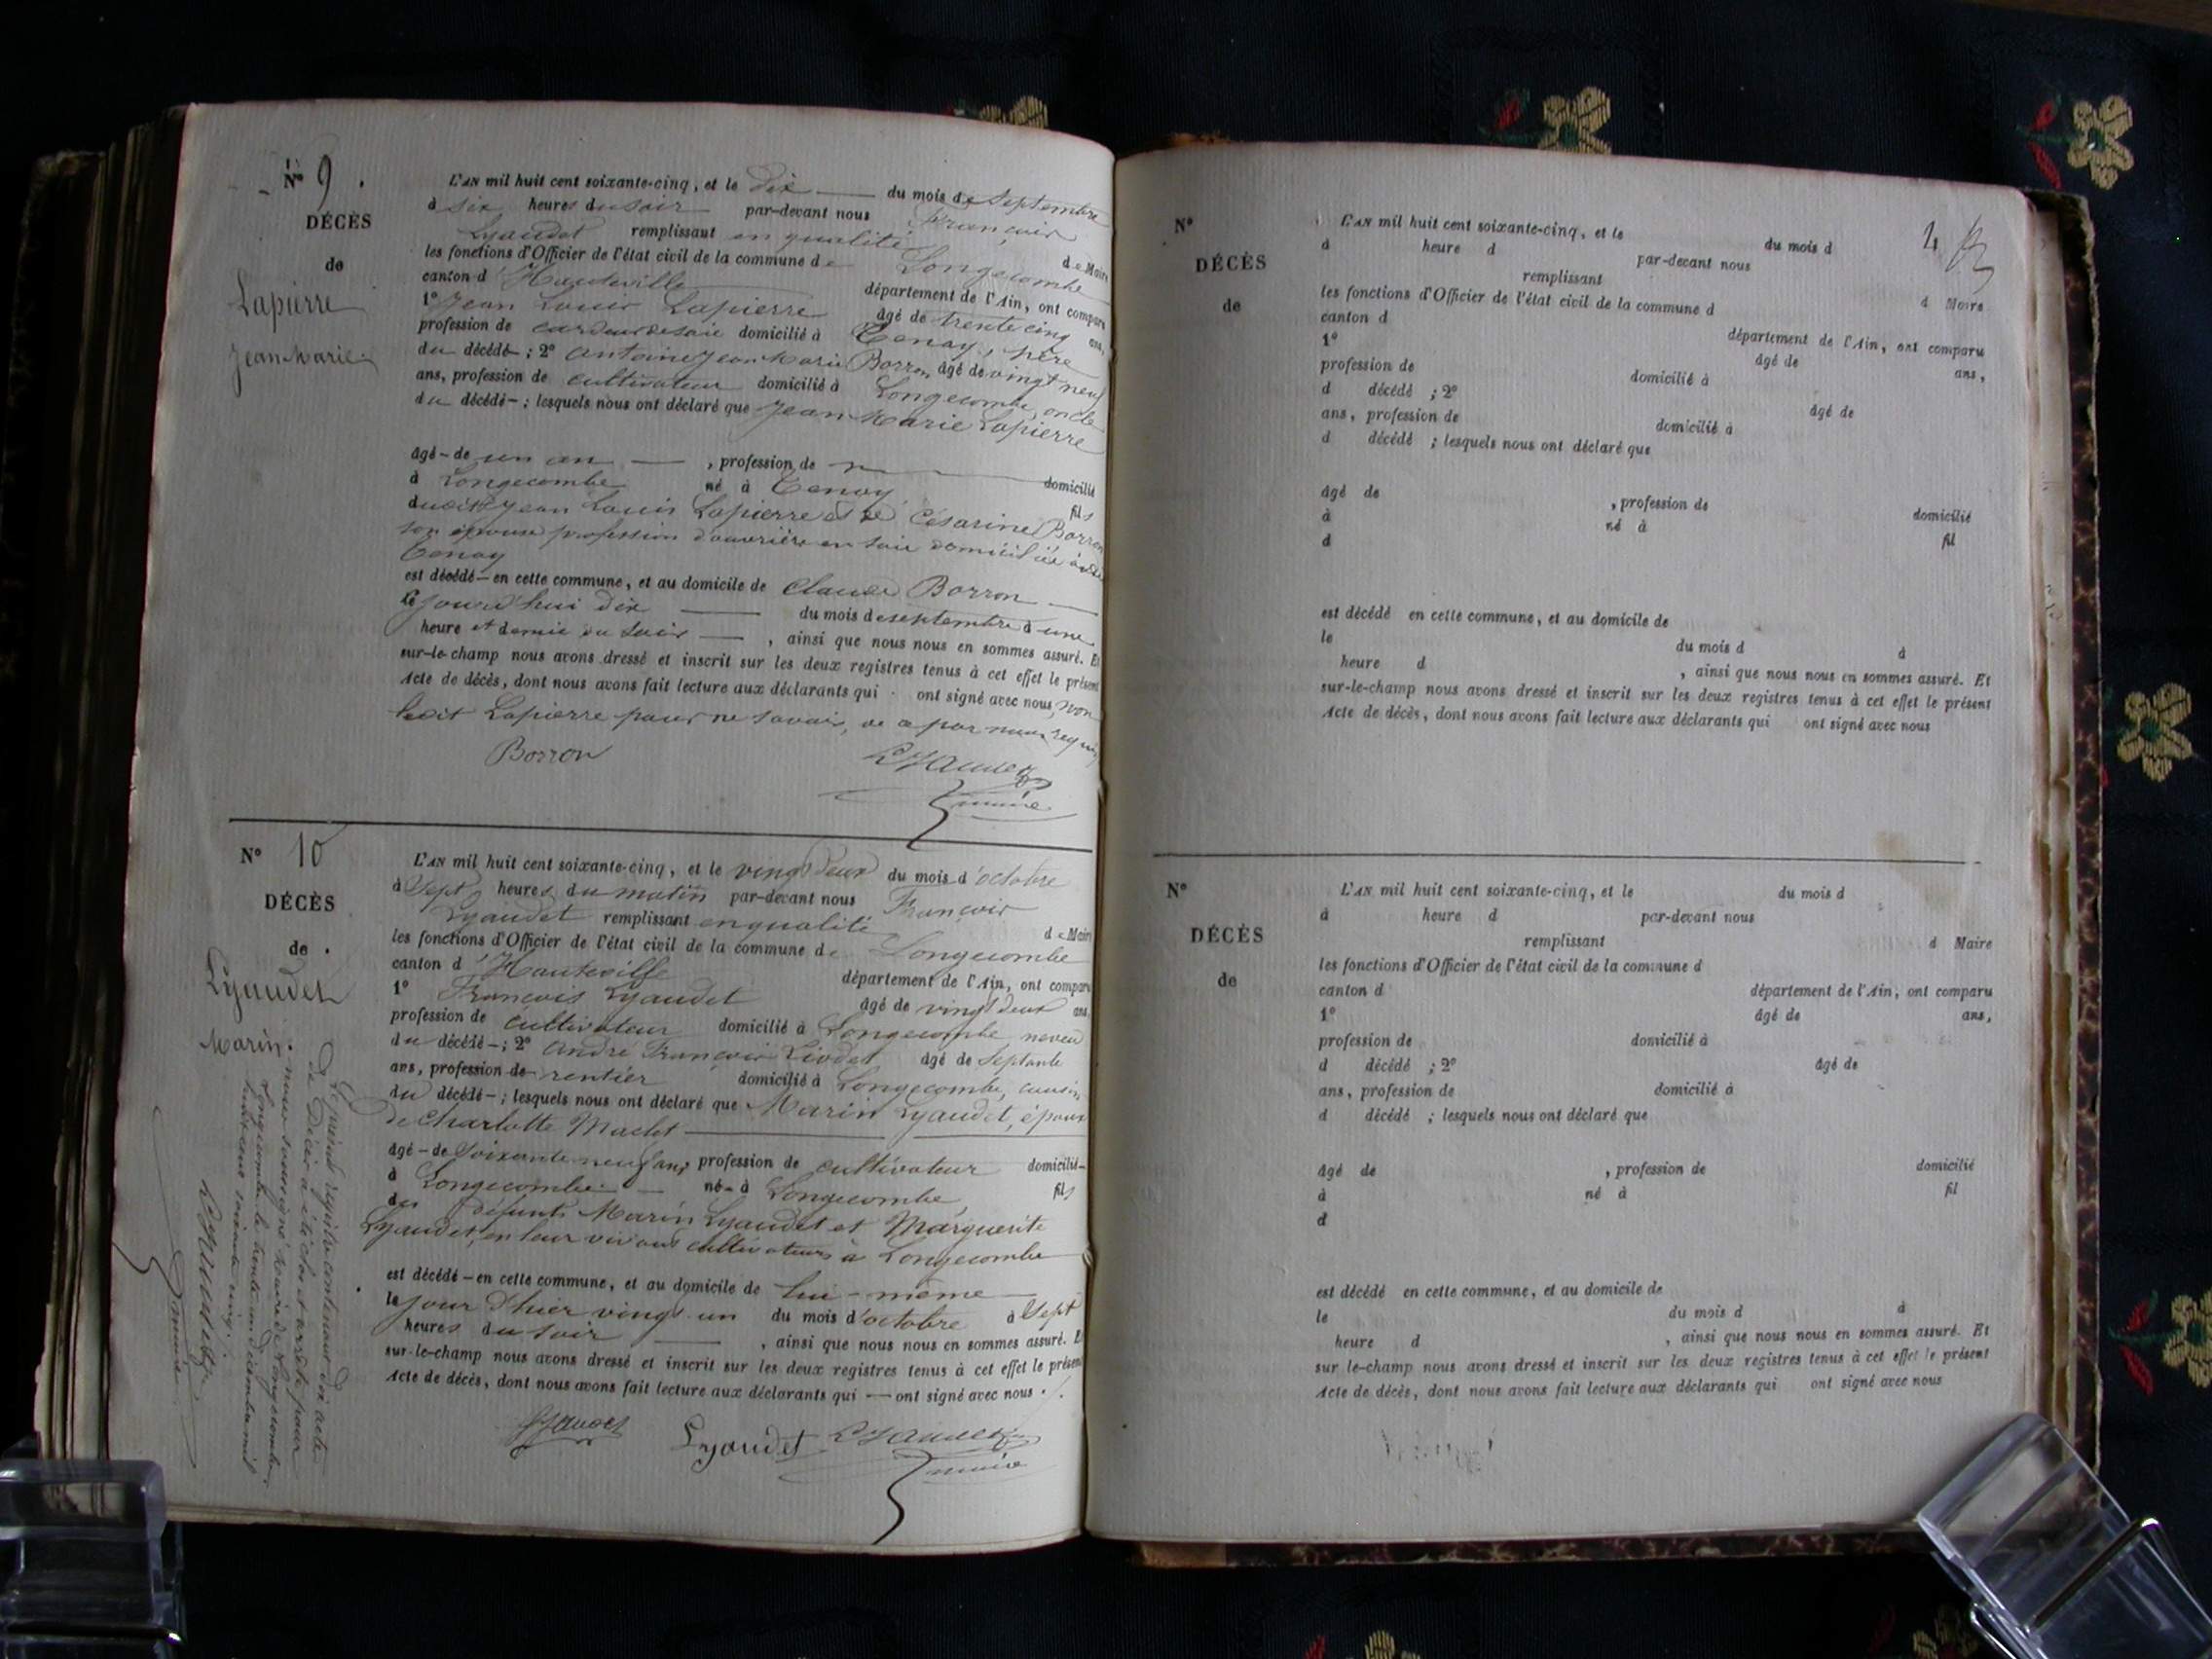 N° 9.
DÉCÈS
de
Lapierre
Jean Marie
L'AN mil huit cent soixante-cinq, et le dix du mois de Septembre
à six heures du soir par-devant nous François
Lyaudet remplissant en qualité de Maire
les fonctions d'Officier de l'état civil de la commune de Longecombe
canton d'Hauteville département de l'Ain, ont comparu
1° Jean Louis Lapierre âgé de trente cinq ans,
profession de cardeur de soie domicilié à Tenay, père
du décédé ; 2° Antoine Jean Marie Borron âgé de vingt neuf
ans, profession de cultivateur domicilié à Longecombe, oncle
du décédé ; lesquels nous ont déclaré que Jean Marie Lapierre
âgé de un an , profession de domicilié
à Longecombe né à Tenay fils
dudit Jean Louis Lapierre et de Césarine Borron
son épouse profession d'ouvrière en soie domiciliée audit
Tenay
est décédé en cette commune, et au domicile de Claude Borron
le jourd'hui dix du mois de septembre à une
heure et demie du soir , ainsi que nous nous en sommes assuré. Et
sur-le-champ nous avons dressé et inscrit sur les deux registres tenus à cet effet le présent
Acte de décès, dont nous avons fait lecture aux déclarants qui ont signé avec nous, non
ledit Lapierre pour ne savoir, de ce par nous requis
Borron Lyaudet
maire
N° 10
DÉCÈS
de
Lyaudet
Marin.
L'AN mil huit cent soixante-cinq, et le vingt deux du mois d'octobre
à Sept heures du matin par-devant nous François
Lyaudet remplissant en qualité de Maire
les fonctions d'Officier de l'état civil de la commune de Longecombe
canton d'Hauteville département de l'Ain, ont comparu
1° François Lyaudet âgé de vingt deux ans,
profession de cultivateur domicilié à Longecombe neveu
du décédé ; 2° André François Liodet âgé de Septante
ans, profession de rentier domicilié à Longecombe, cousin
du décédé ; lesquels nous ont déclaré que Marin Lyaudet, époux
de Charlotte Maclet
âgé de Soixante neuf ans, profession de cultivateur domicilié
à Longecombe né à Longecombe fils
des défunts Marin Lyaudet et Marguerite
Lyaudet, en leur vivant cultivateurs à Longecombe
est décédé en cette commune, et au domicile de Lui-même
le jour d'hier vingt-un du mois d'octobre à Sept
heures du soir , ainsi que nous nous en sommes assuré. Et
sur-le-champ nous avons dressé et inscrit sur les deux registres tenus à cet effet le présent
Acte de décès, dont nous avons fait lecture aux déclarants qui ont signé avec nous.
Lyaudet Lyaudet Lyaudet
maire
Le présent registre contenant dix actes
de Décès a été clos et arrêté par
nous soussigné Maire de Longecombe,
Longecombe le trente un décembre mil
huit cent soixante cinq.
Lyaudet
maire
4
N°
DÉCÈS
de
L'AN mil huit cent soixante-cinq, et le du mois d
à heure d par-devant nous
remplissant d Maire
les fonctions d'Officier de l'état civil de la commune d
canton d département de l'Ain, ont comparu
1° âgé de ans,
profession de domicilié à
d décédé ; 2° âgé de
ans, profession de domicilié à
d décédé ; lesquels nous ont déclaré que
âgé de , profession de domicilié
à né à fil
d
est décédé en cette commune, et au domicile de
le du mois d à
heure d , ainsi que nous nous en sommes assuré. Et
sur-le-champ nous avons dressé et inscrit sur les deux registres tenus à cet effet le présent
Acte de décès, dont nous avons fait lecture aux déclarants qui ont signé avec nous
N°
DÉCÈS
de
L'AN mil huit cent soixante-cinq, et le du mois d
à heure d par-devant nous
remplissant d Maire
les fonctions d'Officier de l'état civil de la commune d
canton d département de l'Ain, ont comparu
1° âgé de ans,
profession de domicilié à
d décédé ; 2° âgé de
ans, profession de domicilié à
d décédé ; lesquels nous ont déclaré que
âgé de , profession de domicilié
à né à fil
d
est décédé en cette commune, et au domicile de
le du mois d à
heure d , ainsi que nous nous en sommes assuré. Et
sur le-champ nous avons dressé et inscrit sur les deux registres tenus à cet effet le présent
Acte de décès, dont nous avons fait lecture aux déclarants qui ont signé avec nous